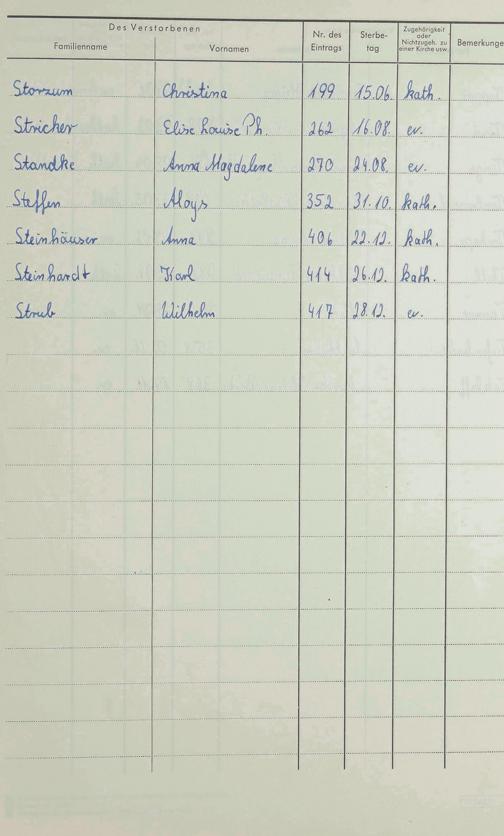 Des Verstorbenen
Familienname Vornamen Nr. des Eintrags Sterbe-tag Zugehörigkeit oder Nichtzugeh. zu einer Kirche usw. Bemerkunge
Storzum Christina 199 15.06. kath.
Stricher Elise Louise Ph. 262 16.08. ev.
Standke Anna Magdalene 270 24.08. ev.
Steffen Aloys 352 31.10. kath.
Steinhäuser Anna 406 22.12. kath.
Steinhardt Karl 414 26.12. kath.
Strub Wilhelm 417 28.12. ev.